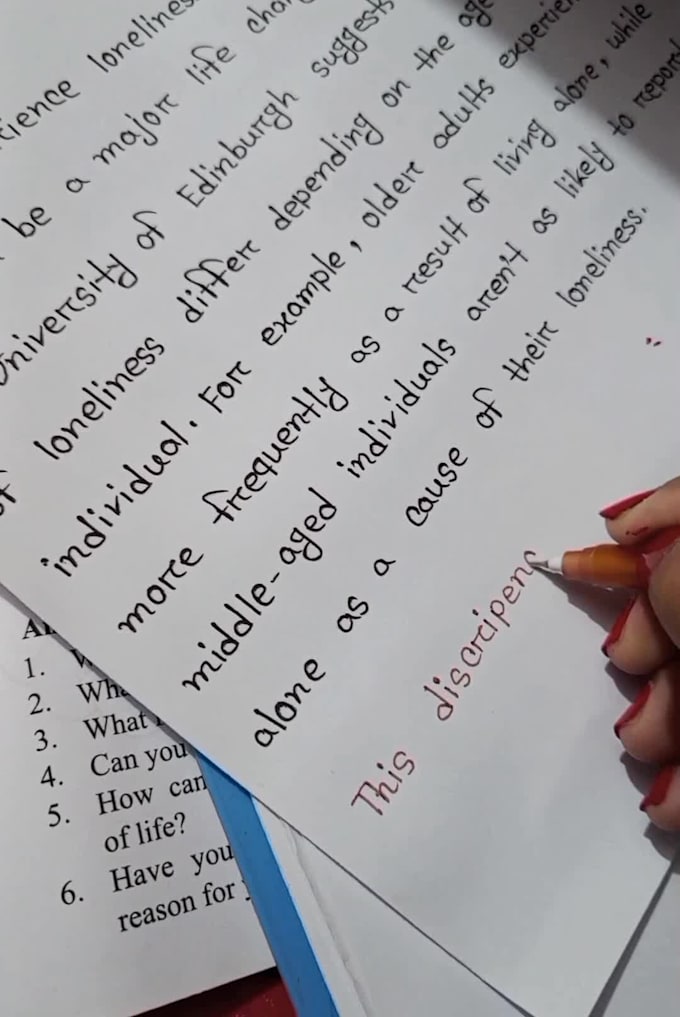 loneliness
be a major life
University of Edinburgh suggests
loneliness differ depending on the age
individual. For example, older adults
more frequently as a result of living alone, while
middle-aged individuals aren't as likely to
alone as a cause of their loneliness.
This discripenc
1.
2.
3. What
4. Can you
5. How can
of life?
6. Have you
reason for